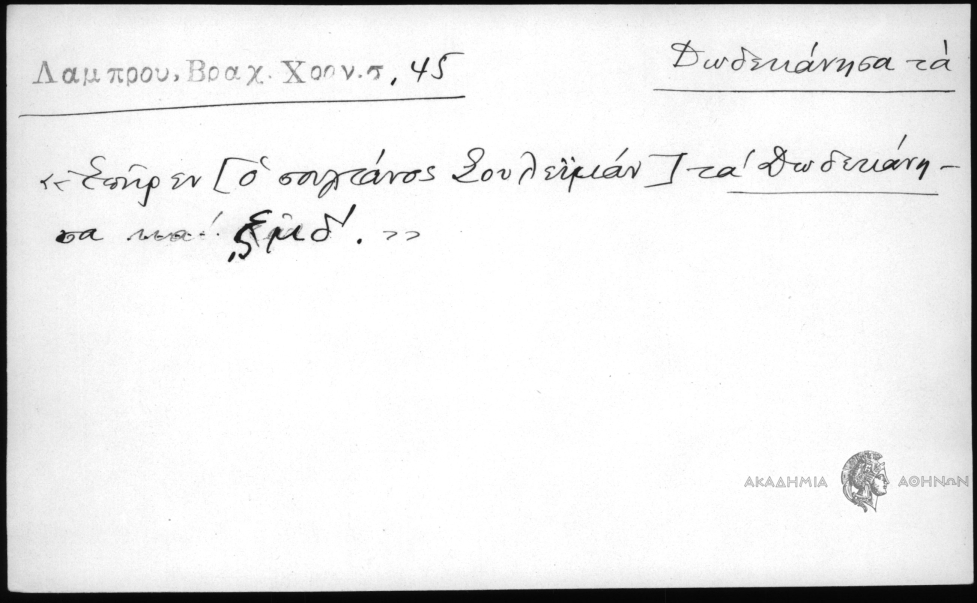 Λαμπρου, Βραχ. Χρον. σ, 45
Δωδεκάνησα τά
«Ἐπῆρεν [ὁ σουλτάνος Σουλεϊμάν] τά Δωδεκάνη-
σα ͵ζμδ΄. »
ΑΚΑΔΗΜΙΑ ΑΘΗΝΩΝ